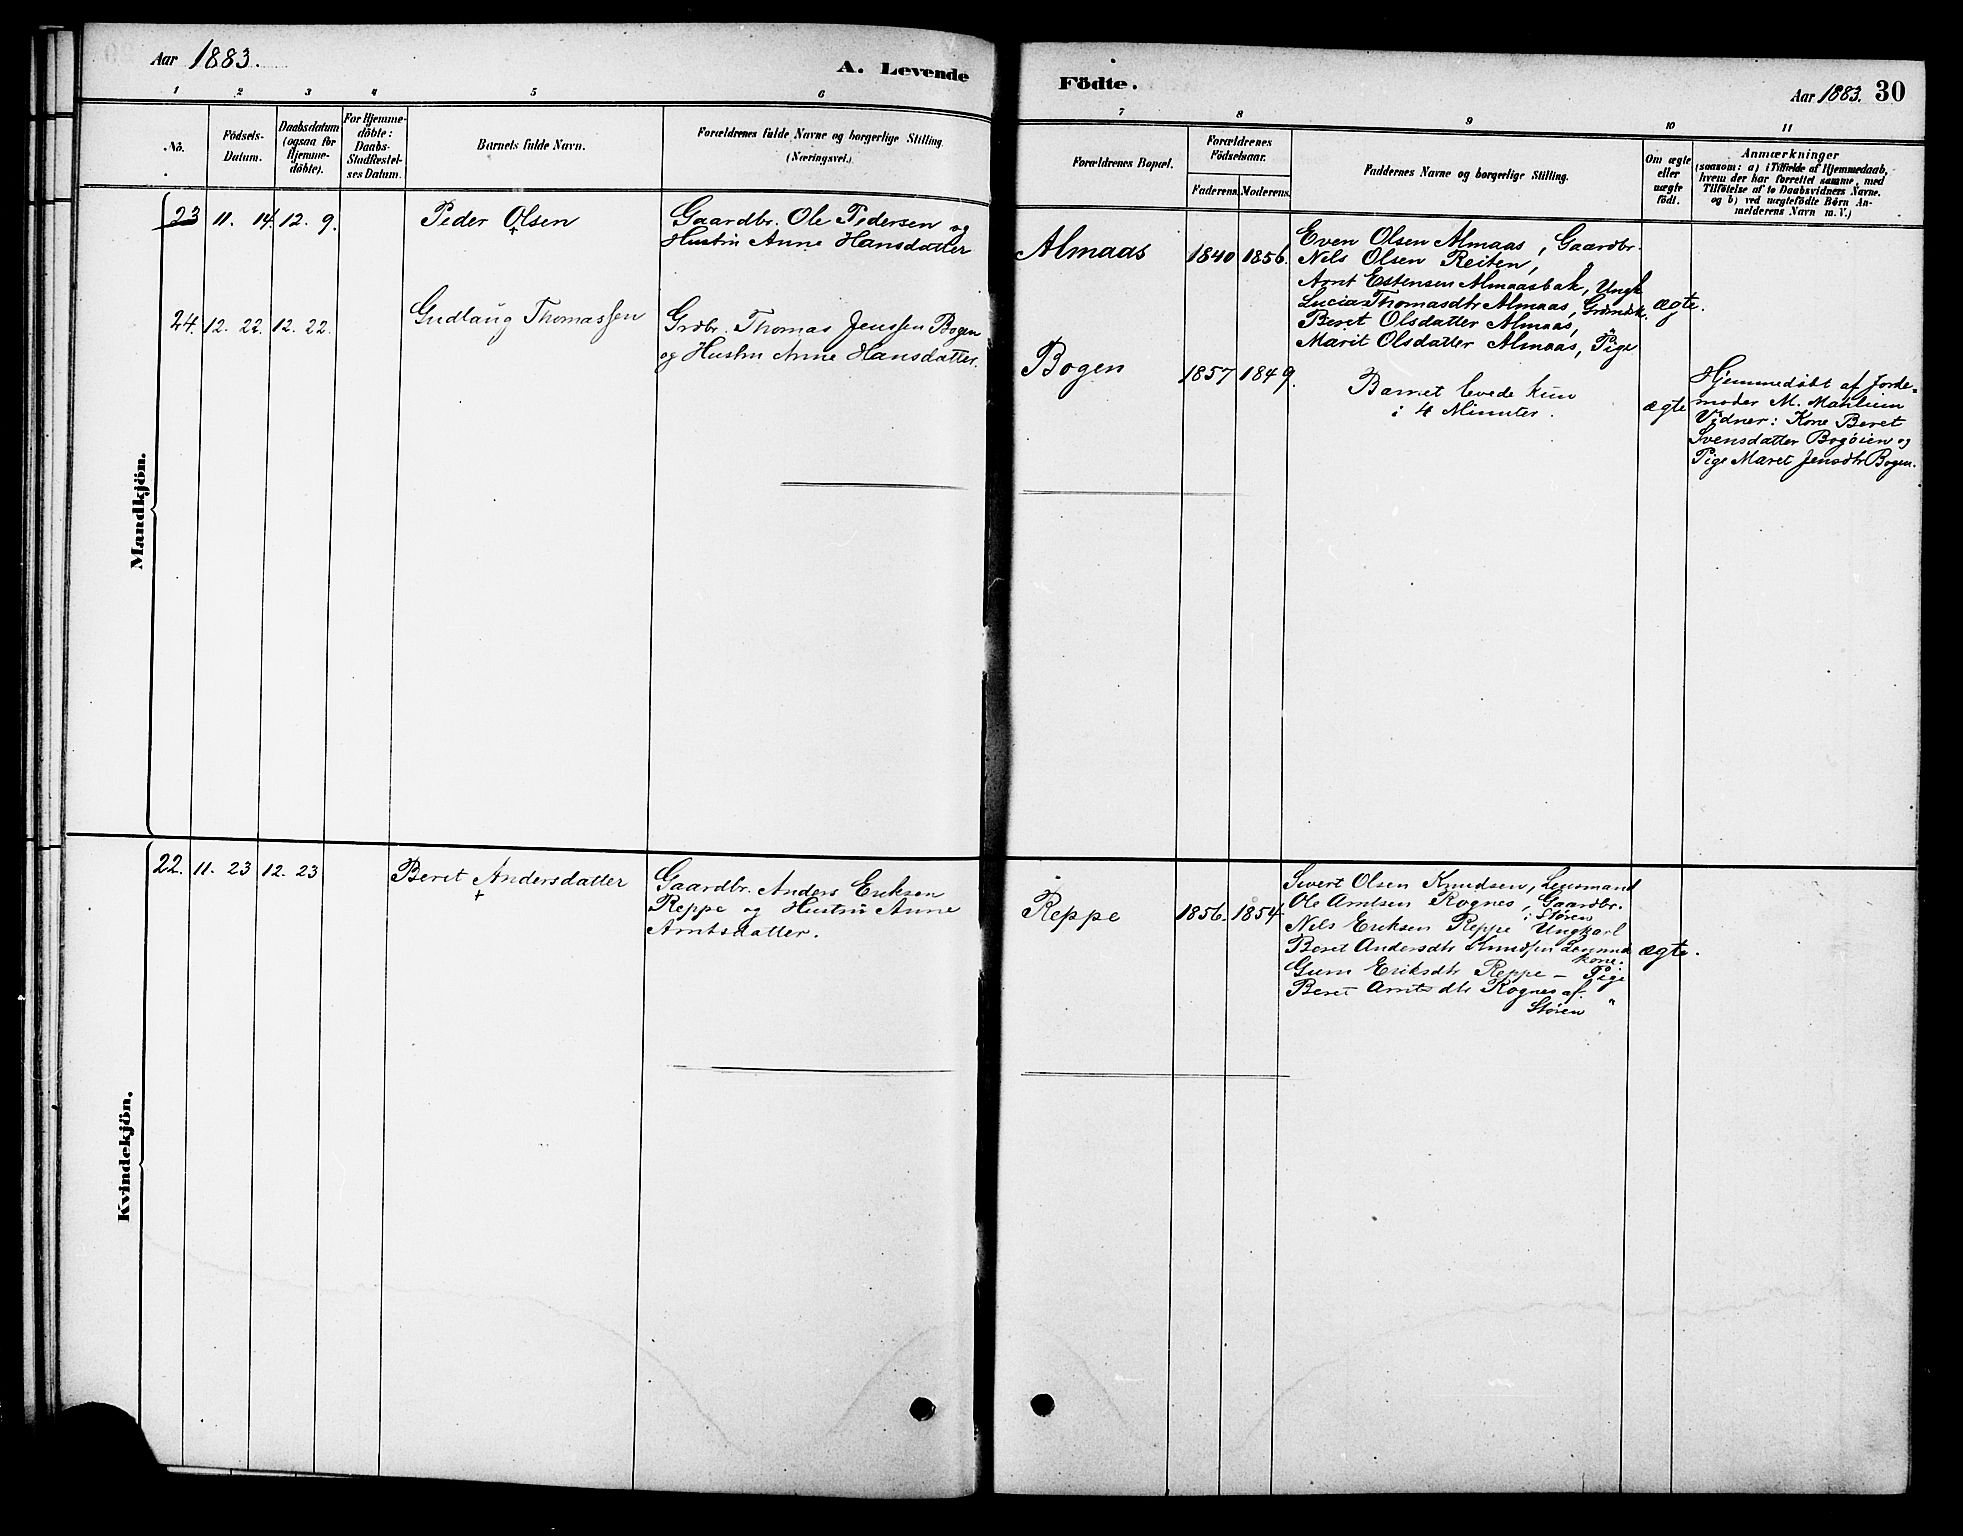 Aar 1883.
A. Levende
1 2 3 4 5 6
No.
Födsels-
Datum.
Daabsdatum
(ogsaa for
Hjemme-
döbte).
For Hjemme-
döbte:
Daabs-
Stadfæstel-
ses Datum.
Barnets fulde Navn.
Forældrenes fulde Navne og borgerlige Stilling.
(Næringsvei.)
Mandkjön.
23 11. 14. 12. 9. Peder Olsen
Gaardbr. Ole Pedersen og
Hustru Anne Hansdatter
24. 12. 22. 12. 22. Gudlaug Thomassen
Grdbr. Thomas Jenssen Bogen
og Hustru Anne Hansdatter.
Kvindekjön.
22. 11. 23 12. 23 Beret Andersdatter
Gaardbr. Anders Eriksen
Reppe og Hustru Anne
Arntsdatter.
Födte.
Aar 1883. 30
7 8 9 10 11
Forældrenes Bopæl.
Forældrenes
Födselsaar.
Faderens. Moderens.
Faddernes Navne og borgerlige Stilling.
Om ægte
eller
uægte
födt.
Anmærkninger
(saasom: a) i Tilfælde af Hjemmedaab,
hvem der har forrettet samme, med
Tilföielse af to Daabsvidners Navne.
og b) ved uægtefödte Börn An-
melderens Navn m. V.)
Almaas 1840 1856.
Even Olsen Almaas, Gaardbr.
Nils Olsen Reiten, "
Arnt Estensen Almaasbak, Ungk
Lucia Thomasdtr Almaas, Grdmdk.
Beret Olsdatter Almaas, "
Marit Olsdatter Almaas, Pige
ægte.
Bogen 1857 1849.
Barnet levede kun
i 4 Minuter.
ægte
Hjemmedöbt af Jorde-
moder M. Manheim
Vidner: Kone Beret
Svensdatter Bogöien og
Pige Maret Jensdtr Bogen.
Reppe 1856. 1854.
Sivert Olsen Knudsen, Lensmand
Ole Arntsen Rognes, Gaardbr.
i Stören
Nils Eriksen Reppe Ungkarl
Beret Andersdtr Knudsen Lensmd
kone.
Guru Eriksdtr Reppe - Pige
Beret Arntsdtr Rognes af "
Stören
ægte.